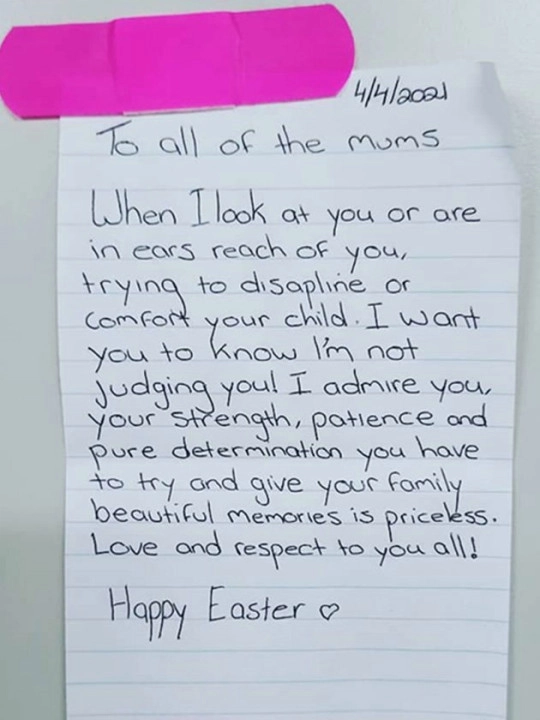 4/4/2021
To all of the mums
When I look at you or are
in ears reach of you,
trying to disapline or
comfort your child. I want
you to know I'm not
judging you! I admire you,
your strength, patience and
pure determination you have
to try and give your family
beautiful memories is priceless.
Love and respect to you all!
Happy Easter ♡